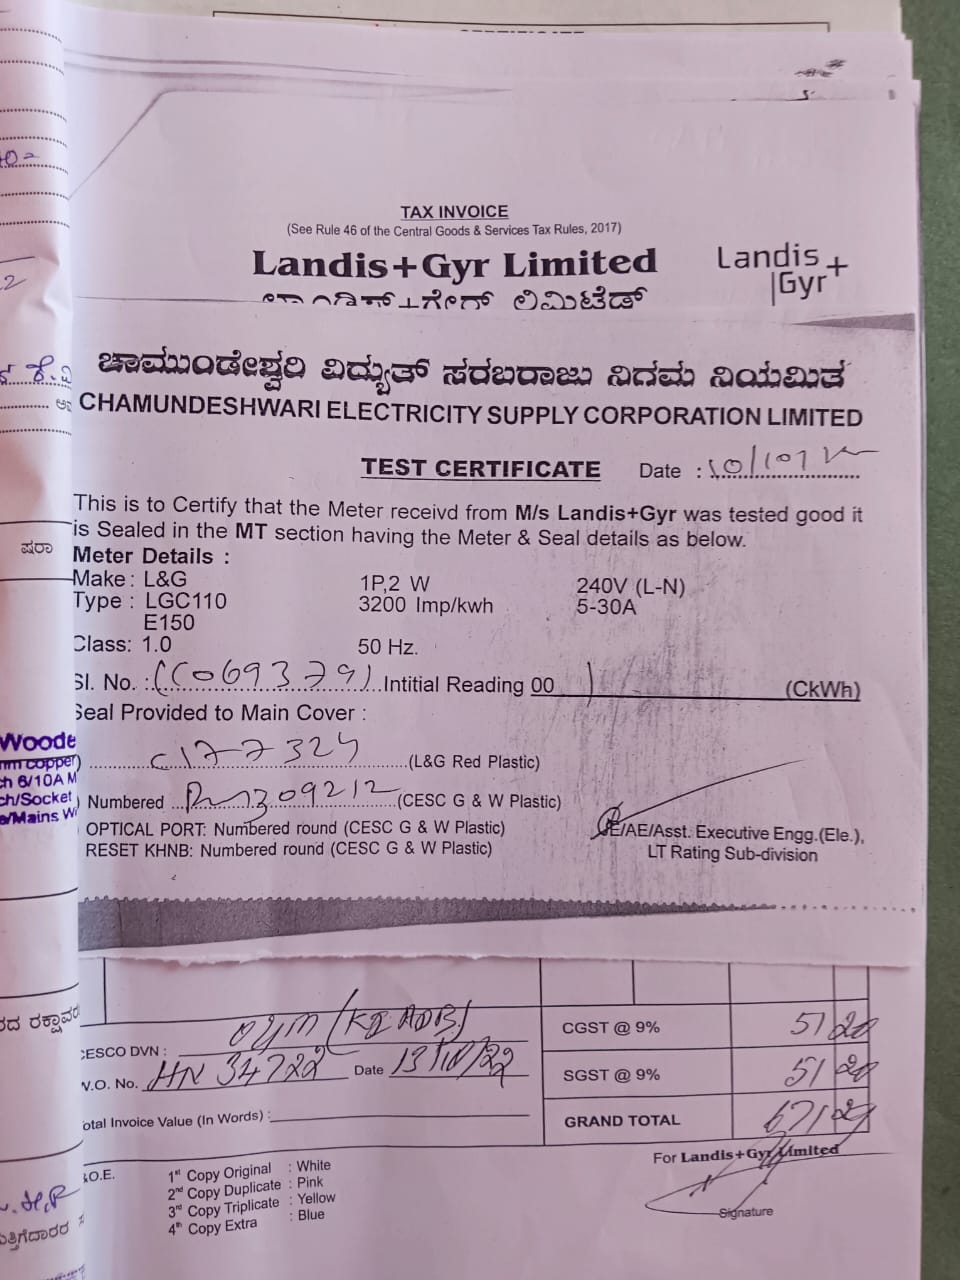 TAX INVOICE
(See Rule 46 of the Central Goods & Services Tax Rules, 2017)
Landis+Gyr Limited
Landis+
Gyr
ಚಾಮುಂಡೇಶ್ವರಿ ವಿದ್ಯುತ್ ಸರಬರಾಜು ನಿಗಮ ನಿಯಮಿತ
CHAMUNDESHWARI ELECTRICITY SUPPLY CORPORATION LIMITED
TEST CERTIFICATE Date :
This is to Certify that the Meter receivd from M/s Landis+Gyr was tested good it
is Sealed in the MT section having the Meter & Seal details as below.
Meter Details :
Make : L&G 1P,2 W 240V (L-N)
Type : LGC110 3200 Imp/kwh 5-30A
E150
Class: 1.0 50 Hz.
Sl. No. : Intitial Reading 00 (CkWh)
Seal Provided to Main Cover :
C177324 (L&G Red Plastic)
Numbered (CESC G & W Plastic)
OPTICAL PORT: Numbered round (CESC G & W Plastic)
RESET KHNB: Numbered round (CESC G & W Plastic)
/AE/Asst. Executive Engg.(Ele.),
LT Rating Sub-division
Woode
copper)
ch 6/10A M
ch/Socket
ಷರಾ
CESCO DVN :
W.O. No. HN 34722 Date 13/10/22
otal Invoice Value (In Words) :
CGST @ 9% 51 20
SGST @ 9% 51 20
GRAND TOTAL 671
&O.E.
1st Copy Original : White
2nd Copy Duplicate : Pink
3rd Copy Triplicate : Yellow
4th Copy Extra : Blue
For Landis+Gyr Limited
Signature